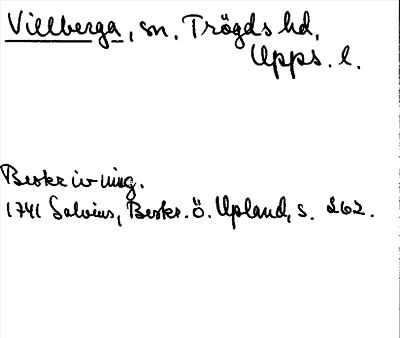 Villberga, sn. Trögds hd,
Upps. l.
Beskrivning.
1741 Salvius, Beskr. ö. Upland, s. 262.